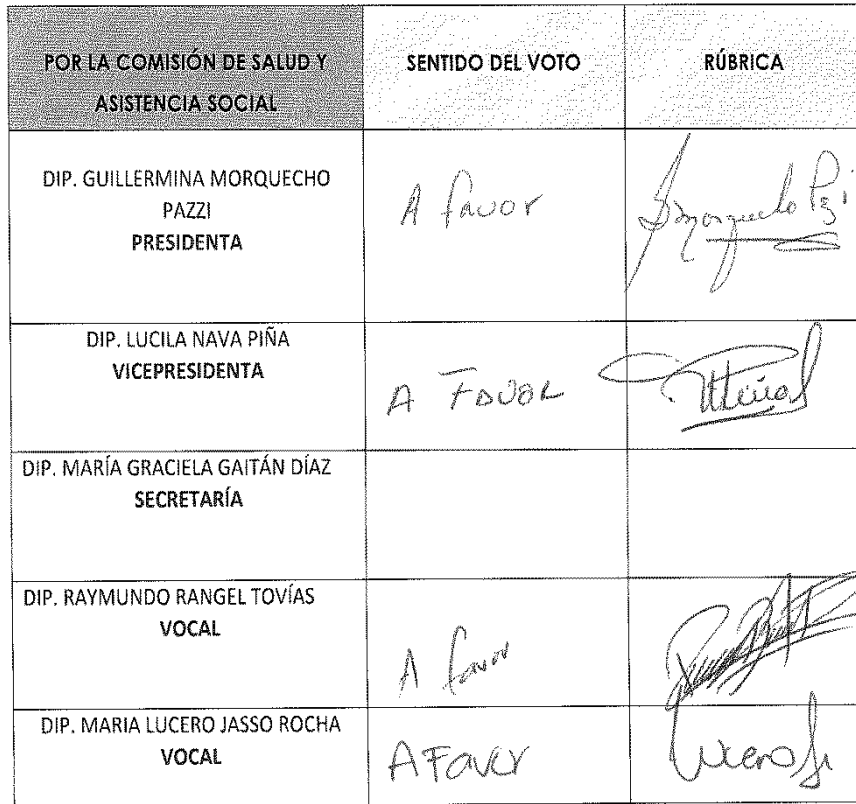 POR LA COMISIÓN DE SALUD Y
ASISTENCIA SOCIAL
SENTIDO DEL VOTO
RÚBRICA
DIP. GUILLERMINA MORQUECHO
PAZZI
PRESIDENTA
A favor
DIP. LUCILA NAVA PIÑA
VICEPRESIDENTA
A FAVOR
DIP. MARÍA GRACIELA GAITÁN DÍAZ
SECRETARÍA
DIP. RAYMUNDO RANGEL TOVÍAS
VOCAL
A favor
DIP. MARIA LUCERO JASSO ROCHA
VOCAL
A Favor